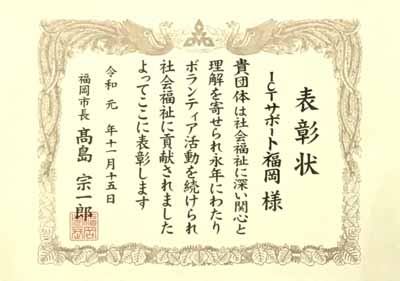 表彰状
ICTサポート福岡 様
貴団体は社会福祉に深い関心と
理解を寄せられ永年にわたり
ボランティア活動を続けられ
社会福祉に貢献されました
よってここに表彰します
令和 元 年十一月十五日
福岡市長 髙島 宗一郎